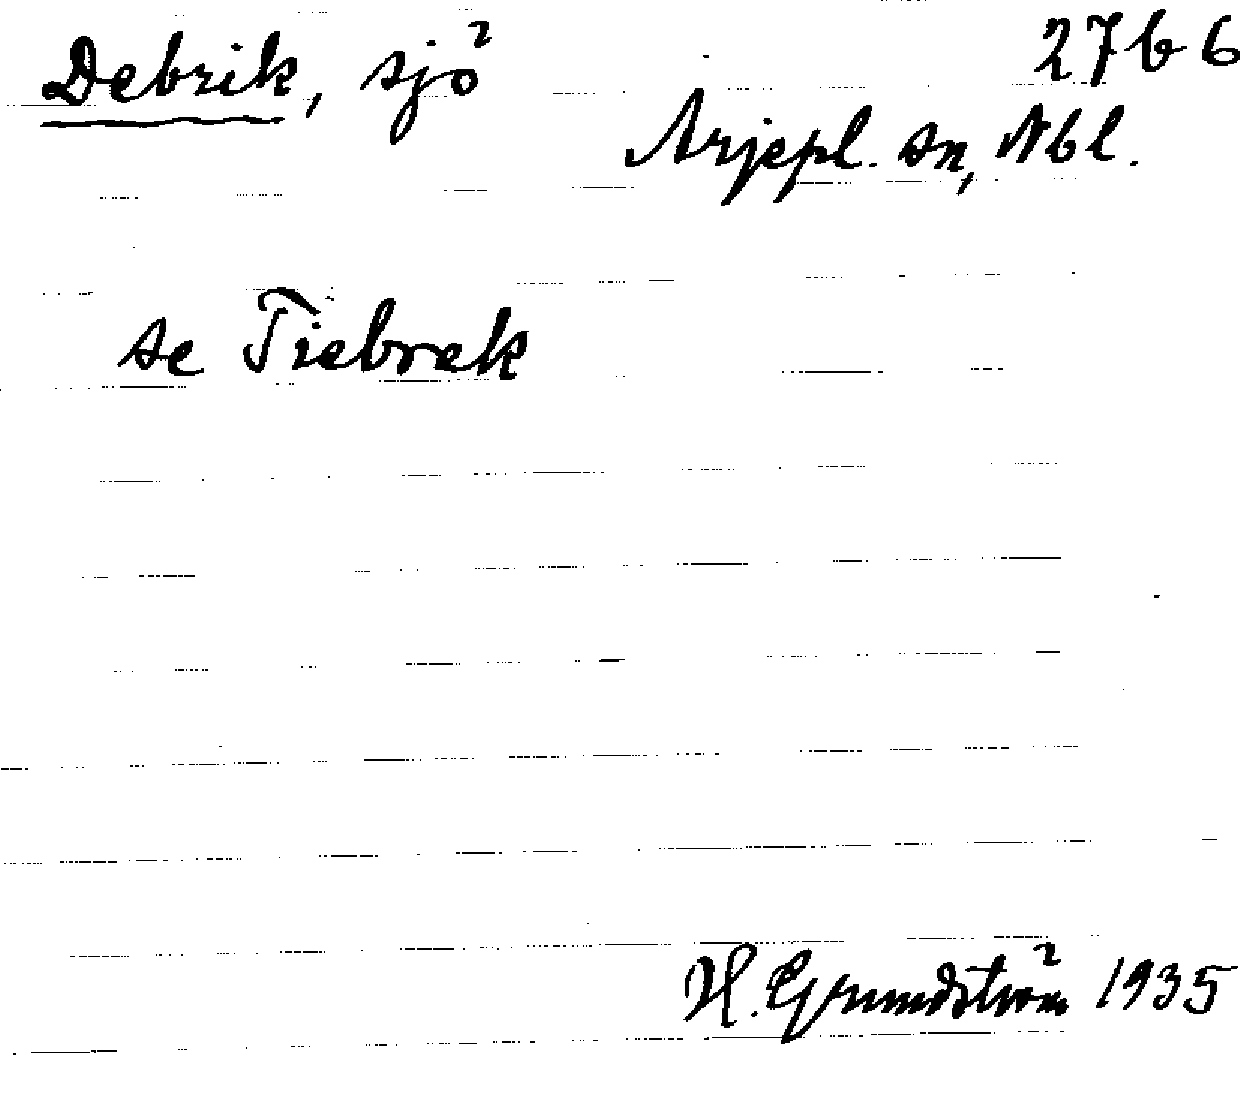 Debrik, sjö 27b6
Arjepl. sn, Nbl.
se Tiebrek
H. Grundström 1935